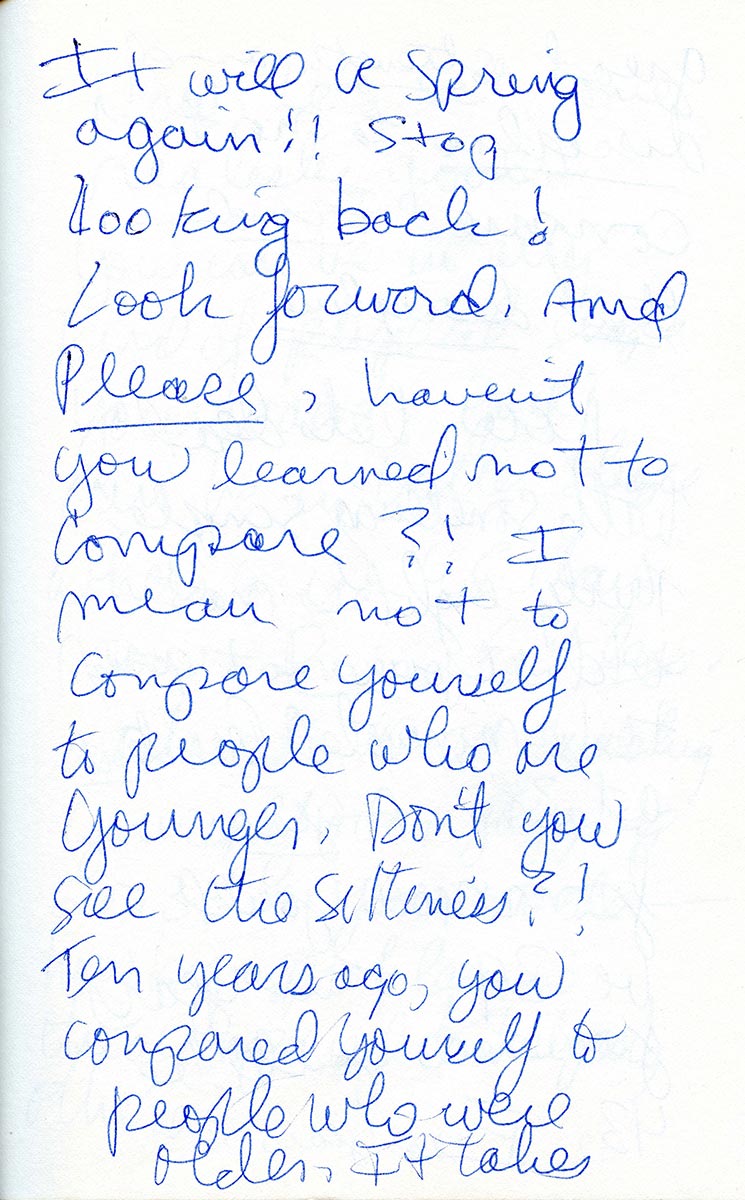 It will be Spring
again!! Stop
looking back!
Look forward. And
Please, haven't
you learned not to
compare?! I
mean not to
compare yourself
to people who are
younger. Don't you
see the silliness?!
Ten years ago, you
compared yourself to
people who were
older. It takes